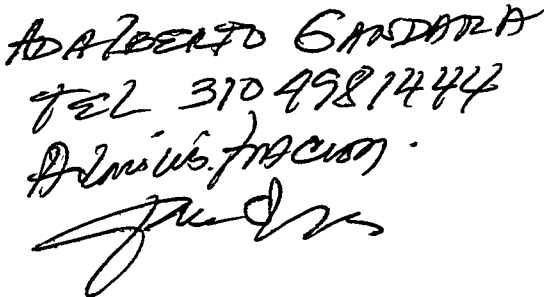 ADALBERTO GANDARA
TEL 310 4981444
Administracion.